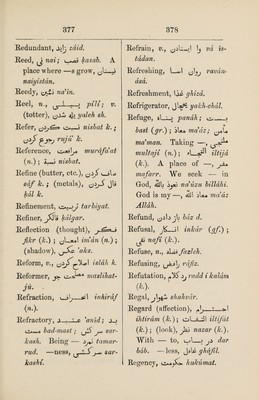 377
Redundant, زايد záid.
Reed, نى nai; قصب ḳasab. A
place where —s grow, نيستان
naiyistán.
Reedy, نئين na'ín.
Reel, n., پيلى pílí; v.
(totter), يله شدن yaleh sh.
Refer, نسبت كردن nisbat k.;
رجوع كردن rujú' k.
Reference, مرافعات muráfa'at
(n.); نسبت nisbat.
Refine (butter, etc.), صاف كردن
sáf k.; (metals), قال كردن
ḳál k.
Refinement, تربيت tarbiyat.
Refiner, قالگر ḳálgar.
Reflection (thought), فكر
fikr (k.); امعان im'án (n.);
(shadow), عكس 'aks.
Reform, v., اصلاح كردن isláh k.
Reformer, مصلحت جو maslihat-
jú.
Refraction, انحراف inhiráf
(n.).
Refractory, عنيد 'aníd; بد
مست bad-mast; سركش sar-
kash. Being — تمرد tamar-
rud. —ness, سركشى sar-
kashí.
378
Refrain, v., وا ايستادن vá is-
tádan.
Refreshing, روان آسا raván-
ásá.
Refreshment, غذا ghizá.
Refrigerator, يخچال yakh-chál.
Refuge, پناه panáh; بست
bast (gr.); معاذ ma'áz; مأمن
ma'man. Taking —, ملتجى
multají (n.); التجا iltijá
(k.). A place of —, مفر
mafarr. We seek — in
God, نعوذ بالله na'úzu billáhi.
God is my —, معاذ الله ma'áz
Alláh.
Refund, باز دادن báz d.
Refusal, انكار inkár (gf.);
نفى nafí (k.).
Refuse, n., فضله fazleh.
Refusing, رافض ráfiz.
Refutation, رد كلام redd i kalám
(k.).
Regal, شهوار shahvár.
Regard (affection), احترام
ihtirám (k.); التفات iltifát
(k.); (look), نظر nazar (k.).
With — to, در باب dar
báb. —less, غافل gháfil.
Regency, حكومت hukúmat.